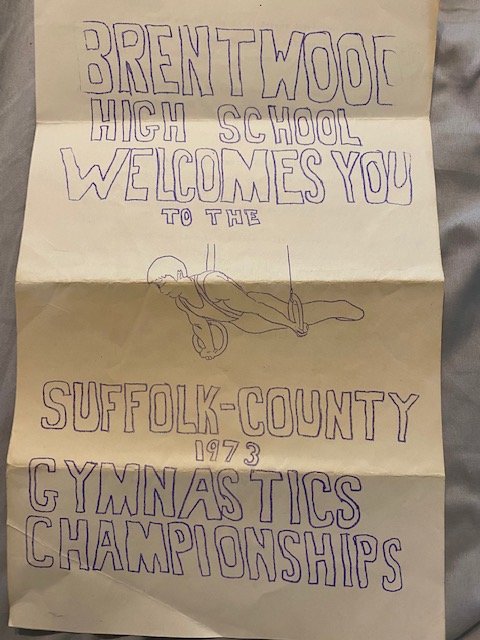 BRENTWOOD
HIGH SCHOOL
WELCOMES YOU
TO THE
SUFFOLK-COUNTY
1973
GYMNASTICS
CHAMPIONSHIPS